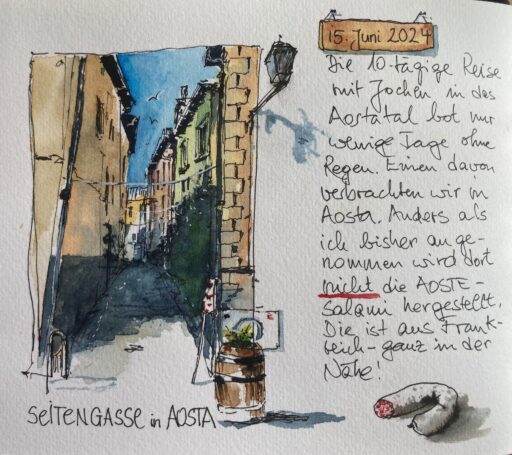 15. Juni 2024
Die 10-tägige Reise
mit Jochen in das
Aostatal bot nur
wenige Tage ohne
Regen. Einen davon
verbrachten wir in
Aosta. Anders als
ich bisher ange-
nommen wird dort
nicht die AOSTE-
Salami hergestellt.
Die ist aus Frank-
reich - ganz in der
Nähe!
SEITENGASSE in AOSTA